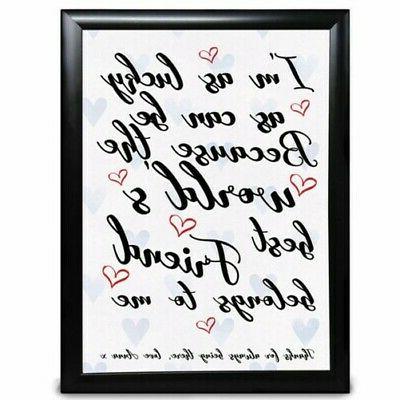 I'm as lucky
as can be
Because the
world's
best
Friend
belongs to me
Thanks for always being there, love Anna x